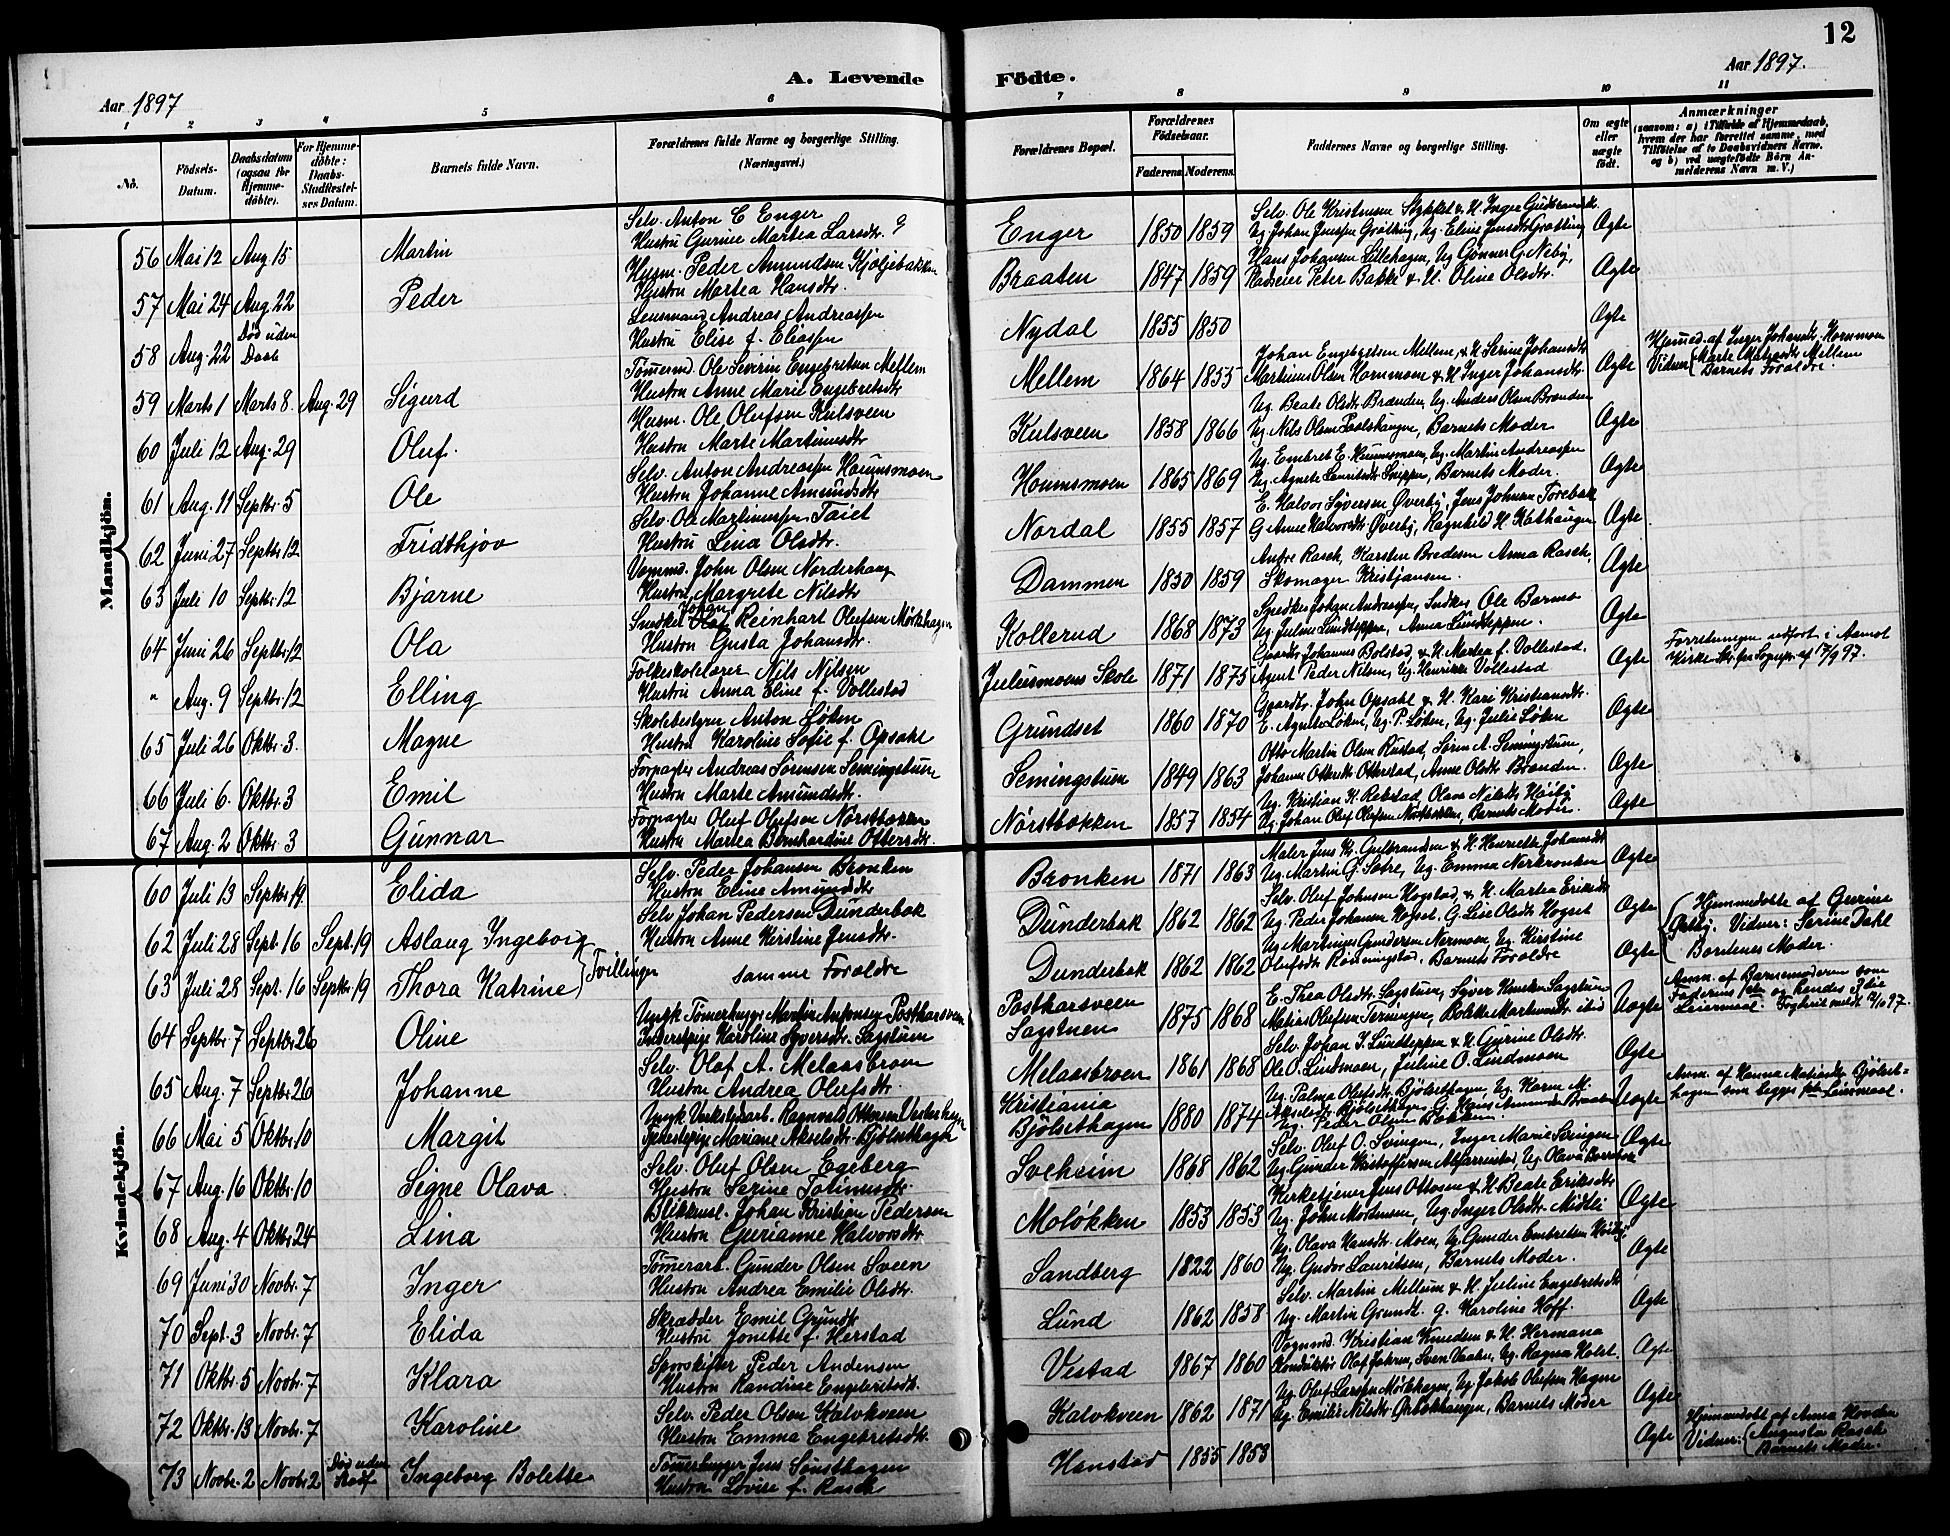 12
A. Levende Födte.
Aar 1897
Aar 1897.
1 2 3 4 5 6 7 8 9 10 11
No.
Födsels-Datum.
Daabsdatum (ogsaa for Hjemme-döbte).
For Hjemme-döbte: Daabs-Stadfæstel-ses Datum.
Barnets fulde Navn.
Forældrenes fulde Navne og borgerlige Stilling. (Næringsvei.)
Forældrenes Bopæl.
Forældrenes Födselsaar.
Faderens Moderens
Faddernes Navne og borgerlige Stilling.
Om ægte eller uægte födt.
Anmærkninger
(saasom: a) i Tilfælde af Hjemmedaab, hvem der har forrettet samme, med Tilföielse af to Daabsvidners Navne, og b) ved uægtefödte Börn An-melderens Navn m.V.)
Mandkjön.
56 Mai 12 Aug. 15 Martin
Selv. Anton C Enger
Hustru Gurine Martea Larsdr.
Enger 1850 1859
Ægte
57 Mai 24 Aug. 22 Peder
Husm. Peder Amundsen Kjøljebakken
Hustru Martea Hansdr.
Braaten 1847 1859
Hans Johansen Lillehagen,
Peter Bakke & H. Oline Olsdr.
Ægte
58 Aug. 22 Død uden Daab
Lensmand Andreas Andreassen
Hustru Elise f. Eliassen
Nydal 1855 1850
Ægte
59 Marts 1 Marts 8. Aug. 29 Sigurd
Tømmermd. Ole Severin Engebretsen Mellem
Hustru Anne Marie Engebretsdr
Mellem 1864 1855
Johan Engebretsen Mellem, & H. Serine Johansdr
Martinus Olsen Hornmoen & H. Inger Johansdr.
Ægte
Hjemmed. af Inger Johansdr. Hornmoen
Vidner Marte Matsdr. Mellem
Barnets Forældre.
60 Juli 12 Aug. 29 Oluf.
Husm. Ole Olufsen Kulsveen
Hustru Marte Martinusdr
Kulsveen 1858 1866
Ug. Beate Olsdr. Brænden, Ug. Anders Olsen Brænden
Ug. Nils Olsen, Barnets Moder
Ægte
61 Aug. 11 Septbr. 5 Ole
Selv. Anton Andreassen Houmsmoen
Hustru Johanne Amundsdr
Houmsmoen 1865 1869
Ug. Embret E. Houmsmoen, Ug. Martin Andreassen
Ug. Agnete Lauritsdr, Barnets Moder.
Ægte
62 Juni 27 Septbr. 12 Fridthjov
Selv. Ole Martinussen Taiet
Hustru Lena Olsdr.
Nordal 1855 1857
E. Halvor Syversen Øverby, Jens Johnsen Torebak
G Anne Halvorsdr Øverby, Ragnhild H. Kathaugen
Ægte
63 Juli 10 Septbr. 12 Bjarne
Vognmd. John Olsen Norderhaug
Hustru Margrete Nilsdr
Dammen 1850 1859
Rasch, Karsten Bredesen Anna Rasch,
Skomager Kristjansen.
Ægte
64 Juni 26 Septbr. 12 Ola
Snedker Johan Reinhart Olufsen Mørkhagen
Hustru Gusta Johansdr.
Kollerud 1868 1873
Snedker Johan Andreassen, Snedker Ole Barmo
Ug. Juline Lundteppen, Anna Lundteppen.
Ægte
" Aug. 9 Septbr. 12 Elling
Folkeskolelærer Nils Nilsen
Hustru Anna Eline f. Vollestad
Juliusmoens Skole 1871 1875
Gaardbr. Johannes Bolstad, & H. Martea f. Vollestad.
Agent Peder Nilsen, Ug. Henrikke Vollestad
Ægte
Forretningen udført i Aamot
Kirke
65 Juli 26 Oktbr. 3. Magne
Skolebestyrer Anton Løken
Hustru Karoline Sofie f. Opsahl
Grundset 1860 1870
Gaardbr. John Opsahl & H. Kari Kristiansdr.
E. Agnete Løken, Ug. P. Løken, Ug. Julie Løken
Ægte
66 Juli 6. Oktbr. 3 Emil
Forpagter Andreas Sørensen Semingstuen
Hustru Marte Amundsdr.
Semingstuen 1849 1863
Otto Martin Olsen Rustad, Søren A. Semingstuen,
Johanne Ottersdr Otterstad, Anne Olsdr. Brænden.
Ægte
67 Aug. 2 Oktbr. 3 Gunnar
Forpagter Oluf Olufsen Nørstbakken
Hustru Martea Bernhardine Ottersdr.
Nørstbækken 1857 1854
Ug. Kristian K. Rebstad, Olava Nilsdr. Haiby
Ug. Johan Oluf Olufsen Nørstbækken, Barnets Moder.
Ægte
Kvindekjön.
60 Juli 13 Septbr. 19. Elida
Selv. Peder Johansen Bronken
Hustru Eline Amundsdr
Bronken 1871 1863
Maler Jens Kr. Gulbrandsen & H. Henriette Johansdr
Ug. Martin G. Sætre, Ug. Emma Nerkronken
Ægte
62 Juli 28 Sept. 16 Sept. 19 Aslaug Ingeborg
Selv Johan Pedersen Dunderbak
Hustru Anne Kirstine Jensdr.
Dunderbak 1862 1862
Selv. Oluf Johnsen Hogstad, & H. Martea Eriksdr
Ug. Peder Johansen Hogset. G. Lise Olsdr Hogset
Ægte
Hjemmedøbte af Gurine
Vidner: Serine Dahl
Børnenes Moder.
63 Juli 28 Sept. 16 Septbr. 19 Thora Katrine
Tvillinger
samme Forældre
Dunderbak 1862 1862
Ug. Martinus Gundersen Nermoen, Ug. Kirstine
Olufsdr Rønningstad, Barnets Forældre
Ægte
64 Septbr. 7 Septbr. 26 Oline
Ungk. Tømmerhugger Martin Antonsen Postkarsveen
Karoline Syversdr. Sagstuen
Postkarsveen
Sagstuen 1875 1868
E. Thea Olsdr. Sagstuen, Syver Knudsen Sagstuen
Matias Olufsen Terningen, Bolette Martinusdr ibid
Uægte
Anm. af Barnemoderen som
Faderens 1ste og hendes 3die
Leiermaal.
65 Aug. 7 Septbr. 26 Johanne
Selv. Olaf A. Melaasbroen
Hustru Andrea Olufsdr.
Melaasbroen 1861 1868
Selv. Johan J. Lundteppen & H. Gurine Olsdr.
Ole O. Lindmoen, Juline O. Lindmoen
Ægte
66 Mai 5 Oktbr. 10 Margit
Ungk Verkstedarb. Ragnvald Ottersen Vesterhagen
Mariane Akselsdr. Bjølsethagen
Kristiania
Bjølsethagen 1880 1874
Ug. Palma Olufsdr. Bjølsethagen, Ug. Karen M.
Akselsdr. Bjølsethagen, G. Hans Amundsen Braaten
Ug. Peder Olsen Bakken.
Uægte
Anm. af Hanna Matisdr. Bjølset-
hagen som begges 1ste Leiermaal.
67 Aug. 16 Oktbr. 10 Signe Olava
Selv. Oluf Olsen Egeberg
Hustru Serine Tolinusdr.
Solheim 1868 1862
Selv. Oluf O. Svingen, Inger Marie Svingen
Ug. Gunder Kristoffersen, Ug. Olava
Ægte
68 Aug. 4 Oktbr. 24 Lina
Blikkensl. Johan Kristian Pedersen
Hustru Gurianne Halvorsdr.
Moløkken 1853 1853
Kirketjener Jens Ottosen & H. Beate Eriksdr
Ug. John Mortensen, Ug. Inger Olsdr. Midtli
Ægte
69 Juni 30 Novbr. 7 Inger
Tømmerarb. Gunder Olsen Sveen
Hustru Andrea Emilie Olsdr.
Sandberg 1822 1860
Ug. Olava Hansdr. Moen, Ug. Gunder Embretsen
Ug. Gudor Lauritsen, Barnets Moder.
Ægte
70 Sept. 3 Novbr. 7 Elida
Skrædder Emil Grundt
Hustru Jonette f. Herstad
Lund 1862 1858
Selv. Martin Mellum & H. Juline Engebretsdr
Ug. Martin Grundt. G. Karoline Hoff.
Ægte
71 Oktbr. 5 Novbr. 7 Klara
Sporskifter Peder Andersen
Hustru Randine Engebretsdr.
Vestad 1867 1860
Vognmd. Kristian Knudsen & H. Hermana
Konduktør Olaf Johren, Sven Vaaler, Ug. Ragna Holst.
Ægte
72 Oktbr. 13 Novbr. 7 Karoline
Selv. Peder Olsen Kalvkveen
Hustru Emma Engebretsdr.
Kalvkveen 1862 1871
Ug. Oluf Larsen Mørkhagen, Ug. Jakob Olufsen Hagen
Ug. Emilie Nilsdr, Barnets Moder
Ægte
73 Novbr. 2 Novbr. 2 Død uden Stadf. Ingeborg Bolette
Tømmerhugger Jens Sønsthagen
Hustru Lovise f. Rasch
Hanstad 1855 1853
Ægte
Hjemmedøbt af Anna Hovden
Vidner: Augusta Rasch
Barnets Moder.